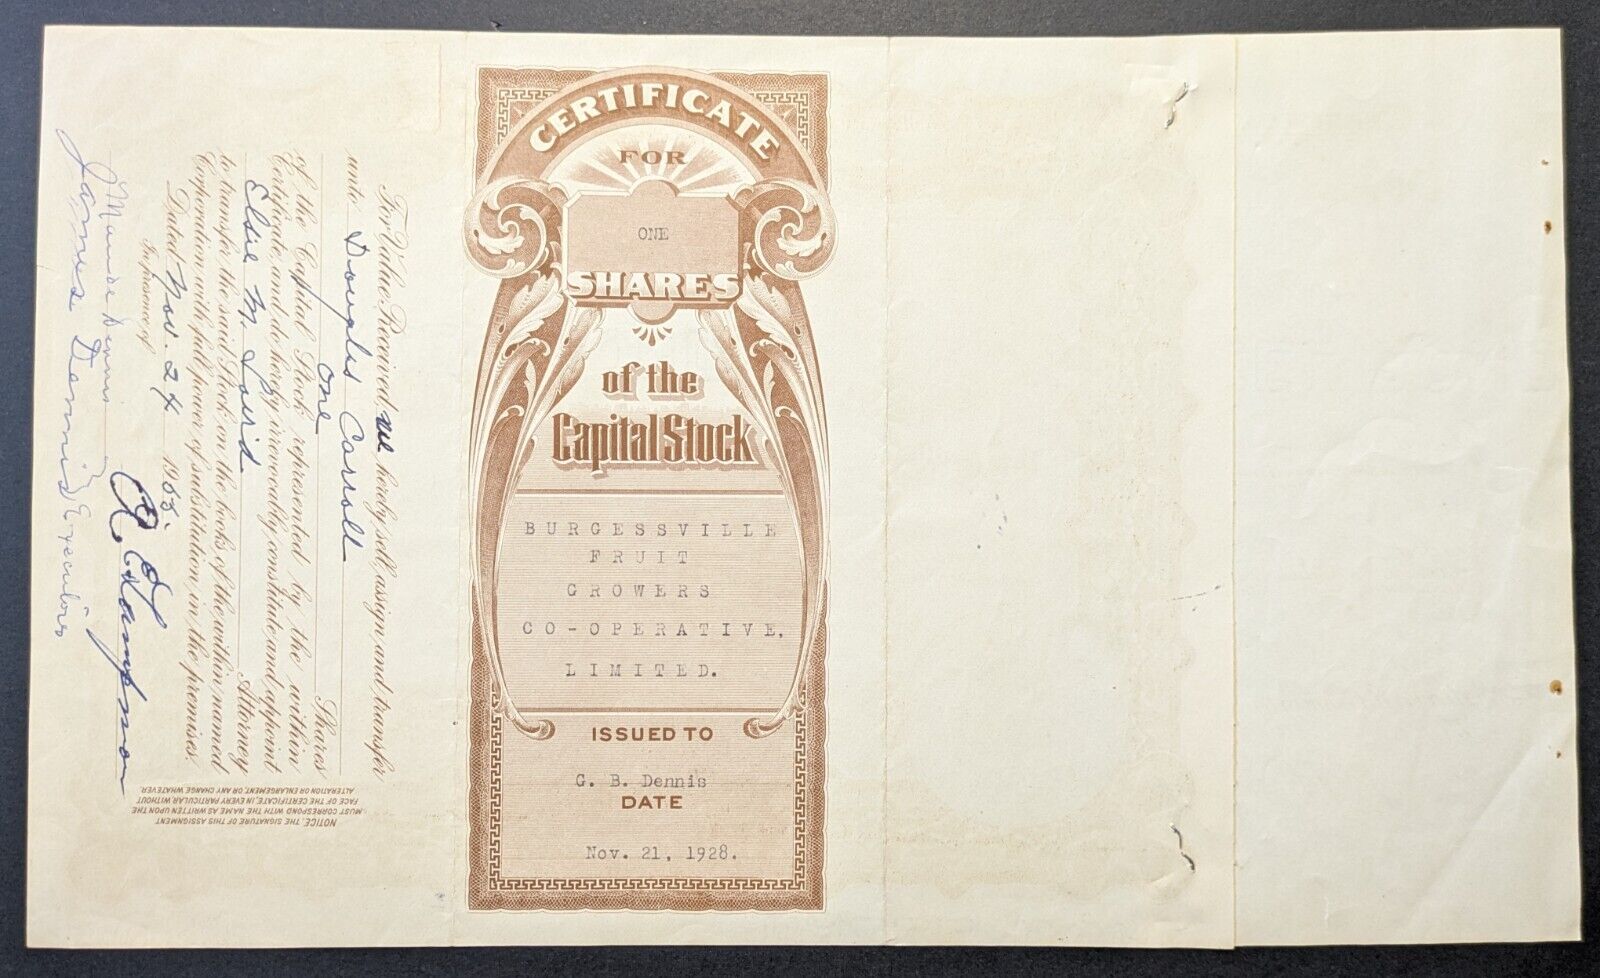 CERTIFICATE
FOR
ONE
SHARES
of the
Capital Stock
BURGESSVILLE
FRUIT
GROWERS
CO-OPERATIVE,
LIMITED.
ISSUED TO
G. B. Dennis
DATE
Nov. 21, 1928.
For Value Received, we hereby sell, assign and transfer
unto Douglas Carroll
one Shares
of the Capital Stock represented by the within
Certificate, and do hereby irrevocably constitute and appoint
Elsie M. Attorney
to transfer the said Stock on the books of the within named
Corporation with full power of substitution in the premises.
Dated Nov. 24 1965.
In presence of
Maude Dennis
James Dennis Executors
NOTICE. THE SIGNATURE OF THIS ASSIGNMENT
MUST CORRESPOND WITH THE NAME AS WRITTEN UPON THE
FACE OF THE CERTIFICATE, IN EVERY PARTICULAR WITHOUT
ALTERATION OR ENLARGEMENT, OR ANY CHANGE WHATEVER.